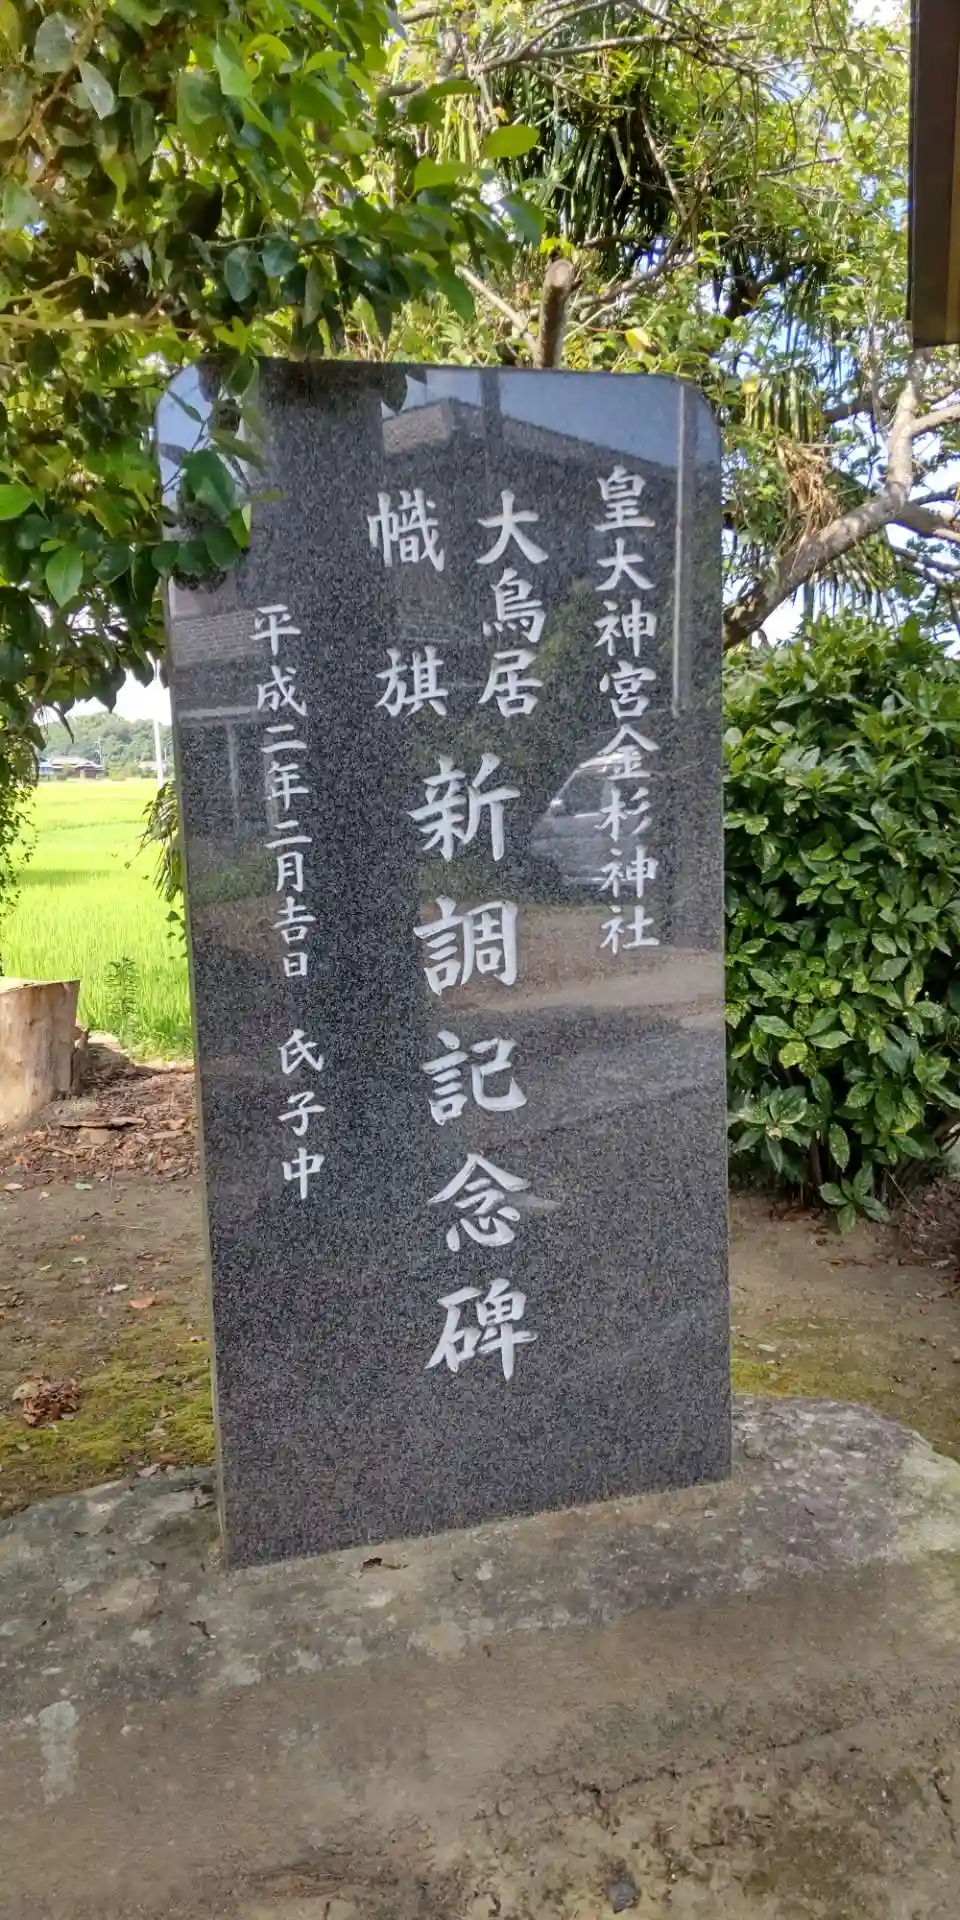 皇大神宮金杉神社
大鳥居
幟旗
新調記念碑
平成二年二月吉日 氏子中